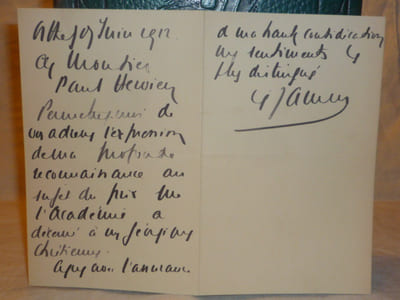 Juin 1912
Monsieur
Paul Hervieu
Permettez moi de
vous adresser l'expression
de ma profonde
reconnaissance au
sujet du prix que
l'Académie a
décerné à mes Géorgiques
Chrétiennes.
Agréez avec l'assurance
de ma haute considération
mes sentiments les
plus distingués
F Jammes